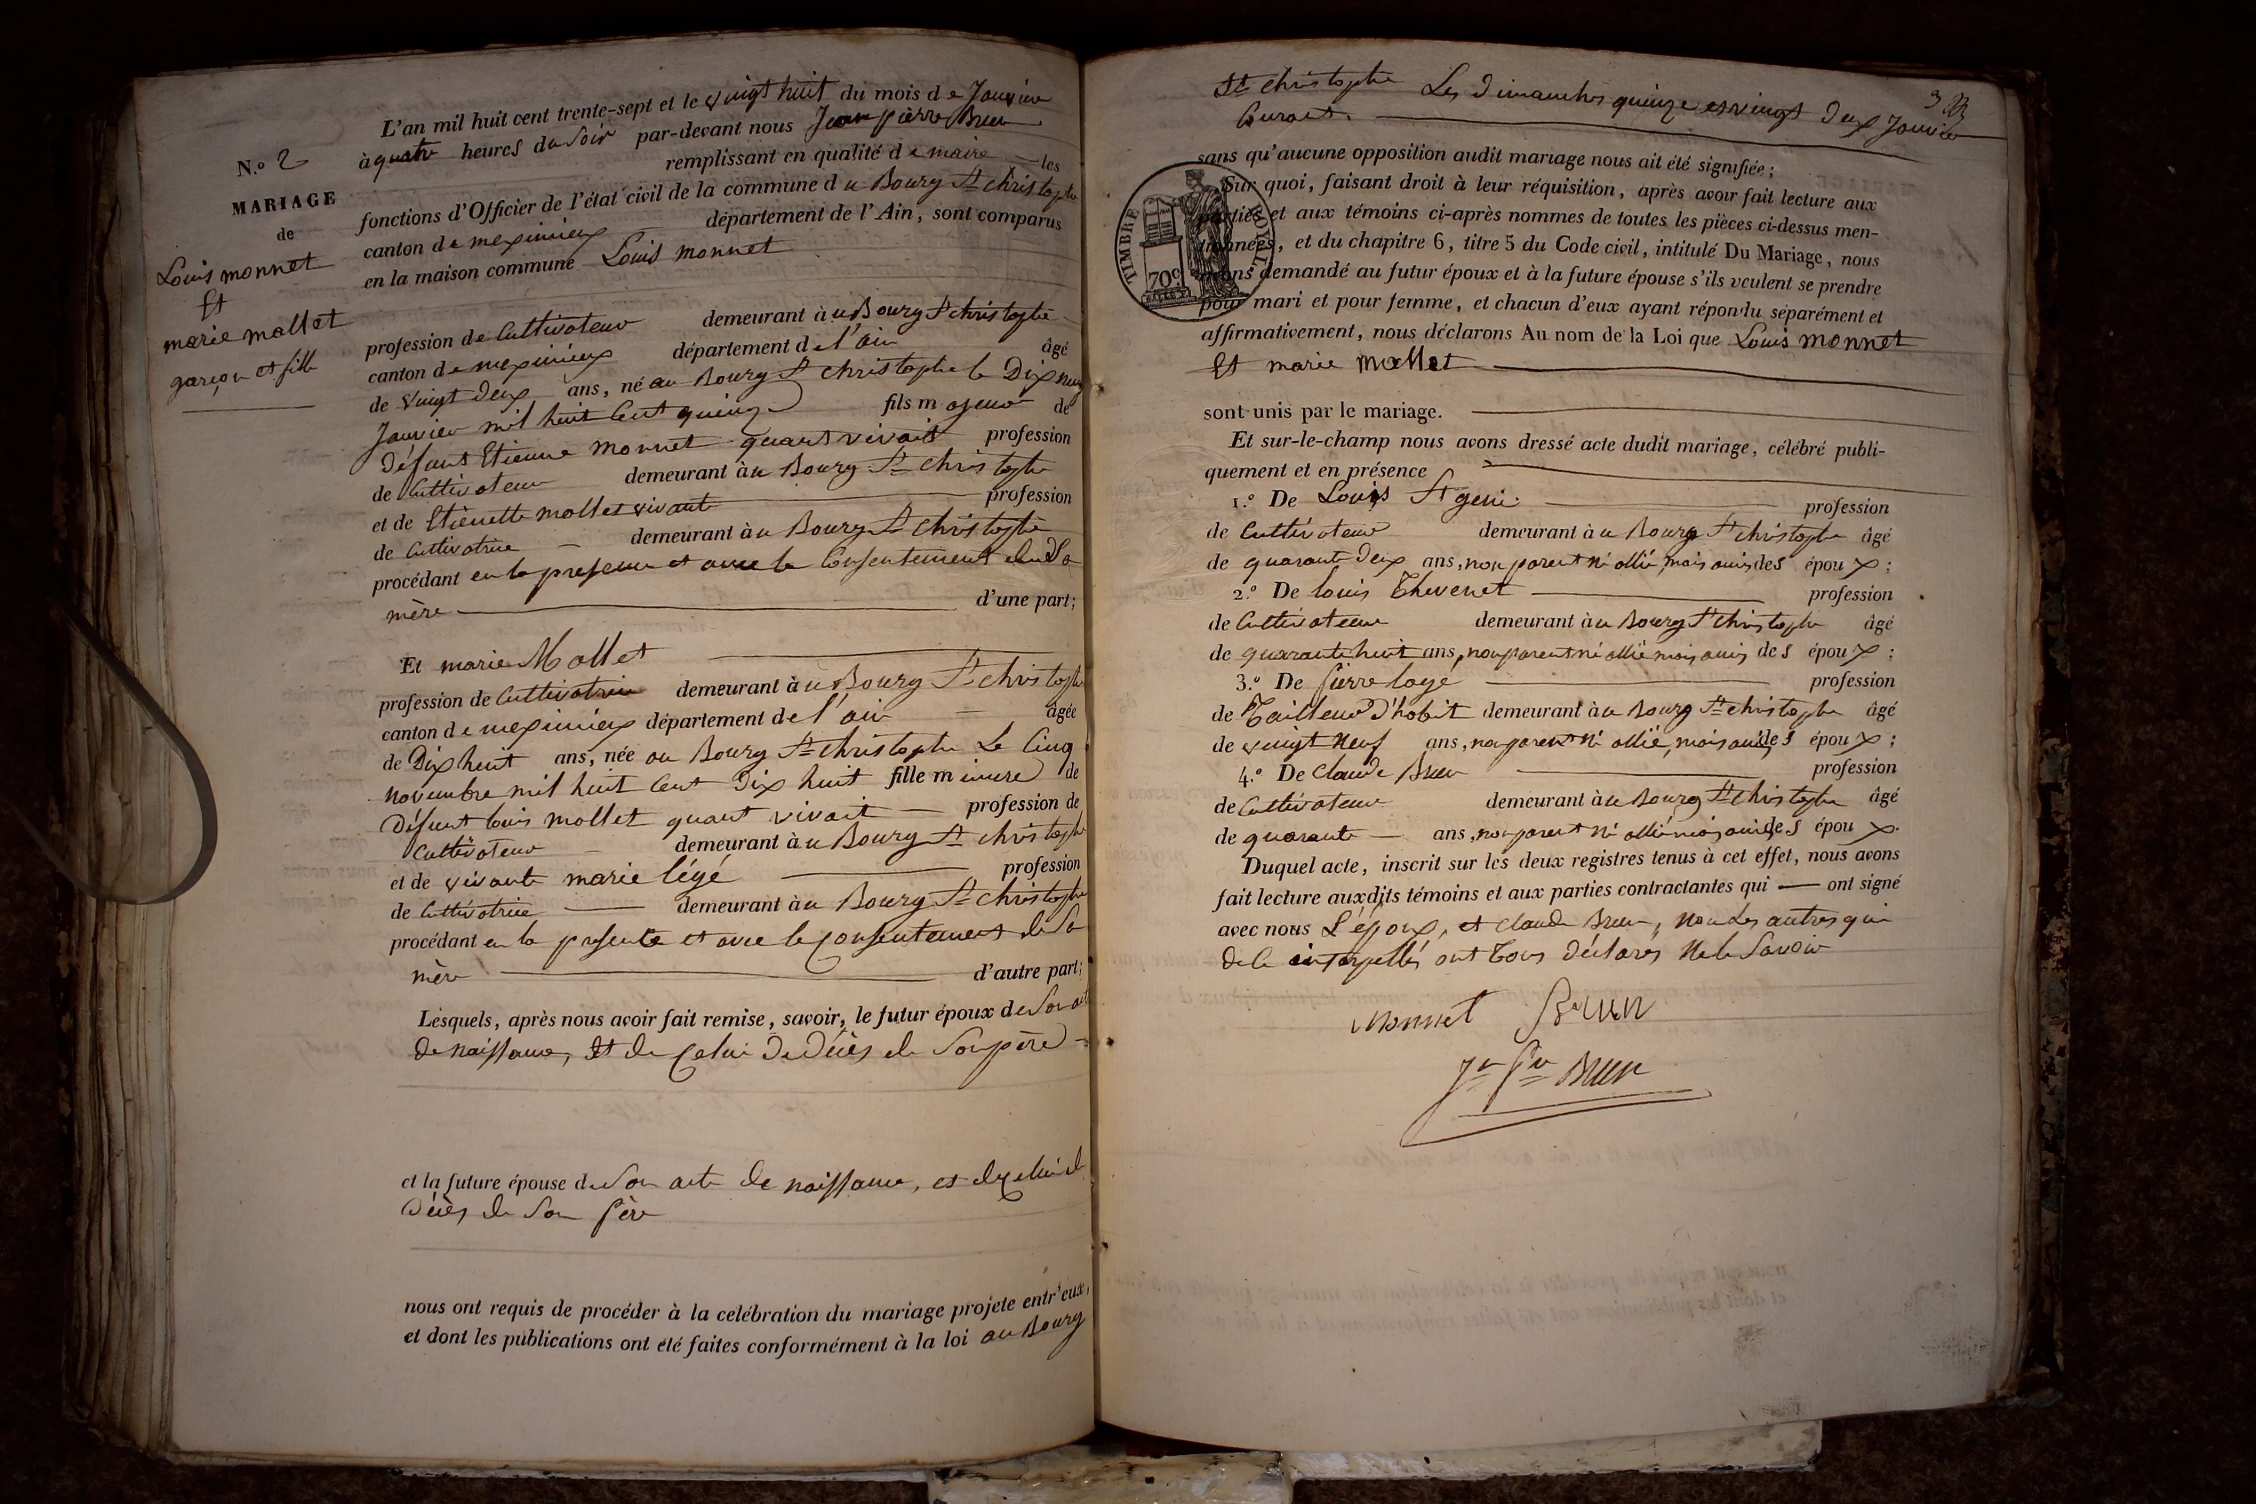 N.o 2
MARIAGE
de
Louis monnet
Et
marie mallet
garçon et fille
L'an mil huit cent trente-sept et le vingt huit du mois de Janvier
à quatre heures du soir par-devant nous Jean pierre Brun
remplissant en qualité de maire les
fonctions d'Officier de l'état civil de la commune du Bourg St christophe
canton de meximieux département de l'Ain, sont comparus
en la maison commune Louis monnet
profession de Cultivateur demeurant à u Bourg St christophe
canton de meximieux département de l'ain âgé
de vingt deux ans, né au Bourg St christophe le Dix neuf
Janvier mil huit Cent quinze fils majeur de
Défunt Etienne monnet quant vivait profession
de Cultivateur demeurant à u Bourg St christophe
et de Etiennette mollet vivante profession
de Cultivatrice demeurant à u Bourg St christophe
procédant en la presence et avec le Consentement de Sa
mère d'une part;
Et marie Mollet
profession de Cultivatrice demeurant à u Bourg St christophe
canton de meximieux département de l'ain âgée
de Dix huit ans, née au Bourg St christophe Le Cinq
novembre mil huit Cent Dix huit fille mineure de
Défunt louis mollet quant vivait profession de
Cultivateur demeurant à u Bourg St christophe
et de vivante marie légé profession
de Cultivatrice demeurant à u Bourg St christophe
procédant en la presence et avec le consentement de Sa
mère d'autre part;
Lesquels, après nous avoir fait remise, savoir, le futur époux de Son acte
de naissance, Et de Celui De Décès de Son père
et la future épouse de Son acte de naissance, et de celui de
Décès de Son père
nous ont requis de procéder à la celébration du mariage projeté entr'eux,
et dont les publications ont été faites conformément à la loi au Bourg
St christophe Les Dimanches quinze et vingt deux Janvier
Courant.
3
sans qu'aucune opposition audit mariage nous ait été signifiée;
Sur quoi, faisant droit à leur réquisition, après avoir fait lecture aux
parties et aux témoins ci-après nommés de toutes les pièces ci-dessus men-
tionnées, et du chapitre 6, titre 5 du Code civil, intitulé Du Mariage, nous
avons demandé au futur époux et à la future épouse s'ils veulent se prendre
pour mari et pour femme, et chacun d'eux ayant répondu séparément et
affirmativement, nous déclarons Au nom de la Loi que Louis monnet
Et marie mallet
TIMBRE ROYAL
70c
sont unis par le mariage.
Et sur-le-champ nous avons dressé acte dudit mariage, célébré publi-
quement et en présence
1.o De Louis St genie profession
de Cultivateur demeurant à u Bourg St christophe âgé
de quarante Deux ans, non parent ni allié, mais amis des époux;
2.o De louis Thevenet profession
de Cultivateur demeurant à u Bourg St christophe âgé
de quarante huit ans, non parent ni allié mais amis des époux;
3.o De pierre logé profession
de Tailleur d'habit demeurant à u Bourg St christophe âgé
de vingt Neuf ans, non parent ni allié, mais amis des époux;
4.o De Claude Brun profession
de Cultivateur demeurant à u Bourg St christophe âgé
de quarante ans, non parent ni allié mais amis des époux.
Duquel acte, inscrit sur les deux registres tenus à cet effet, nous avons
fait lecture auxdits témoins et aux parties contractantes qui ont signé
avec nous L'époux, et Claude Brun, Non Les autres qui
de ce interpellés ont Tous Déclarés Ne le Savoir
monnet Brun
Jn Pre Brun